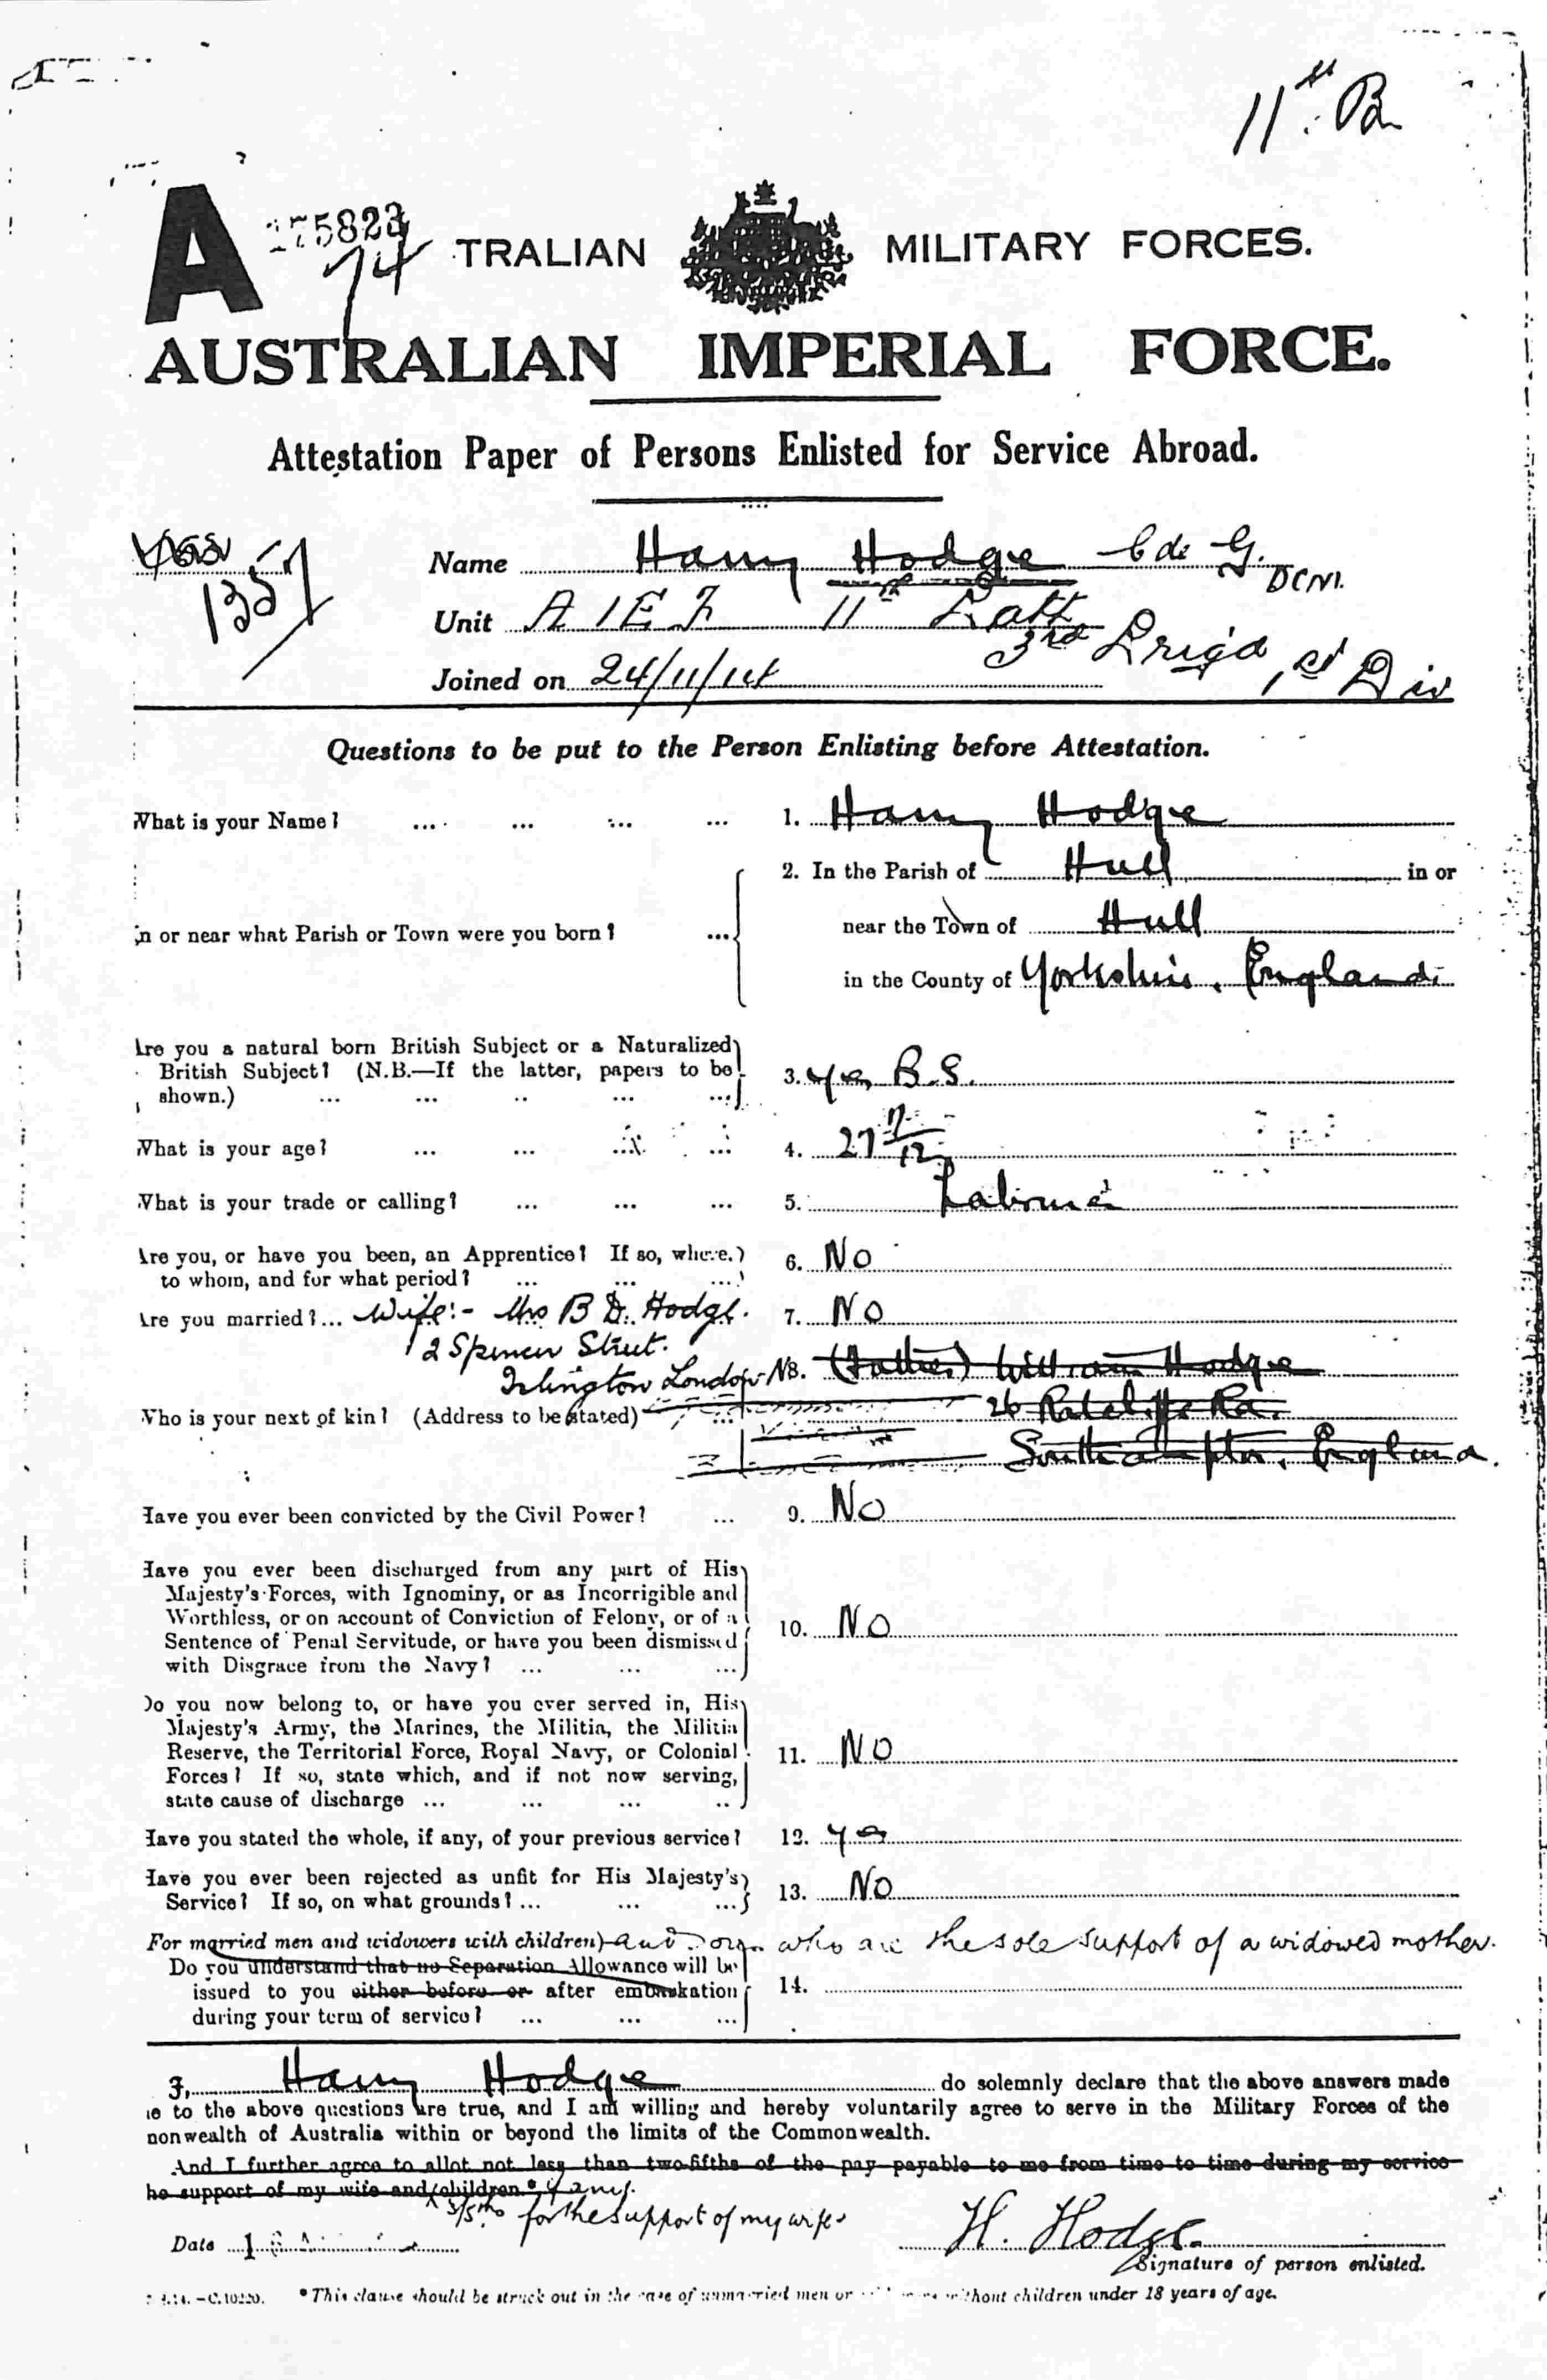 11th B
A
175823
74
TRALIAN MILITARY FORCES.
AUSTRALIAN IMPERIAL FORCE.
Attestation Paper of Persons Enlisted for Service Abroad.
1357
Name Harry Hodge C de G. DCM.
Unit A I E F 11th Batt 3rd Brigd 1st Div
Joined on 24/11/14
Questions to be put to the Person Enlisting before Attestation.
What is your Name? ... ... ... ... 1. Harry Hodge
2. In the Parish of Hull in or
In or near what Parish or Town were you born? ... near the Town of Hull
in the County of Yorkshire, England.
Are you a natural born British Subject or a Naturalized
British Subject? (N.B.—If the latter, papers to be 3. yes B.S.
shown.) ... ... ... ... ...
What is your age? ... ... ... ... 4. 27 7/12
What is your trade or calling? ... ... ... 5. Labourer
Are you, or have you been, an Apprentice? If so, where, 6. No
to whom, and for what period? ... ... ...
Are you married?... Wife:- Mrs B D. Hodge. 7. No
2 Spencer Street.
Islington London N8. (Father) William Hodge
Who is your next of kin? (Address to be stated) 26 Ratcliffe Rd.
Southampton, England.
Have you ever been convicted by the Civil Power? ... 9. No
Have you ever been discharged from any part of His
Majesty's Forces, with Ignominy, or as Incorrigible and
Worthless, or on account of Conviction of Felony, or of a 10. No
Sentence of Penal Servitude, or have you been dismissed
with Disgrace from the Navy? ... ... ...
Do you now belong to, or have you ever served in, His
Majesty's Army, the Marines, the Militia, the Militia
Reserve, the Territorial Force, Royal Navy, or Colonial 11. No
Forces? If so, state which, and if not now serving,
state cause of discharge ... ... ... ...
Have you stated the whole, if any, of your previous service? 12. yes
Have you ever been rejected as unfit for His Majesty's
Service? If so, on what grounds? ... ... ... 13. No
For married men and widowers with children) and who are the sole support of a widowed mother.
Do you understand that no Separation Allowance will be
issued to you either before or after embarkation 14.
during your term of service? ... ... ...
I, Harry Hodge do solemnly declare that the above answers made
me to the above questions are true, and I am willing and hereby voluntarily agree to serve in the Military Forces of the
monwealth of Australia within or beyond the limits of the Commonwealth.
And I further agree to allot not less than two-fifths of the pay payable to me from time to time during my service
he support of my wife and children.* if any.
3/5ths for the support of my wife
Date 1
H. Hodge.
Signature of person enlisted.
C.10220. *This clause should be struck out in the case of unmarried men or without children under 18 years of age.